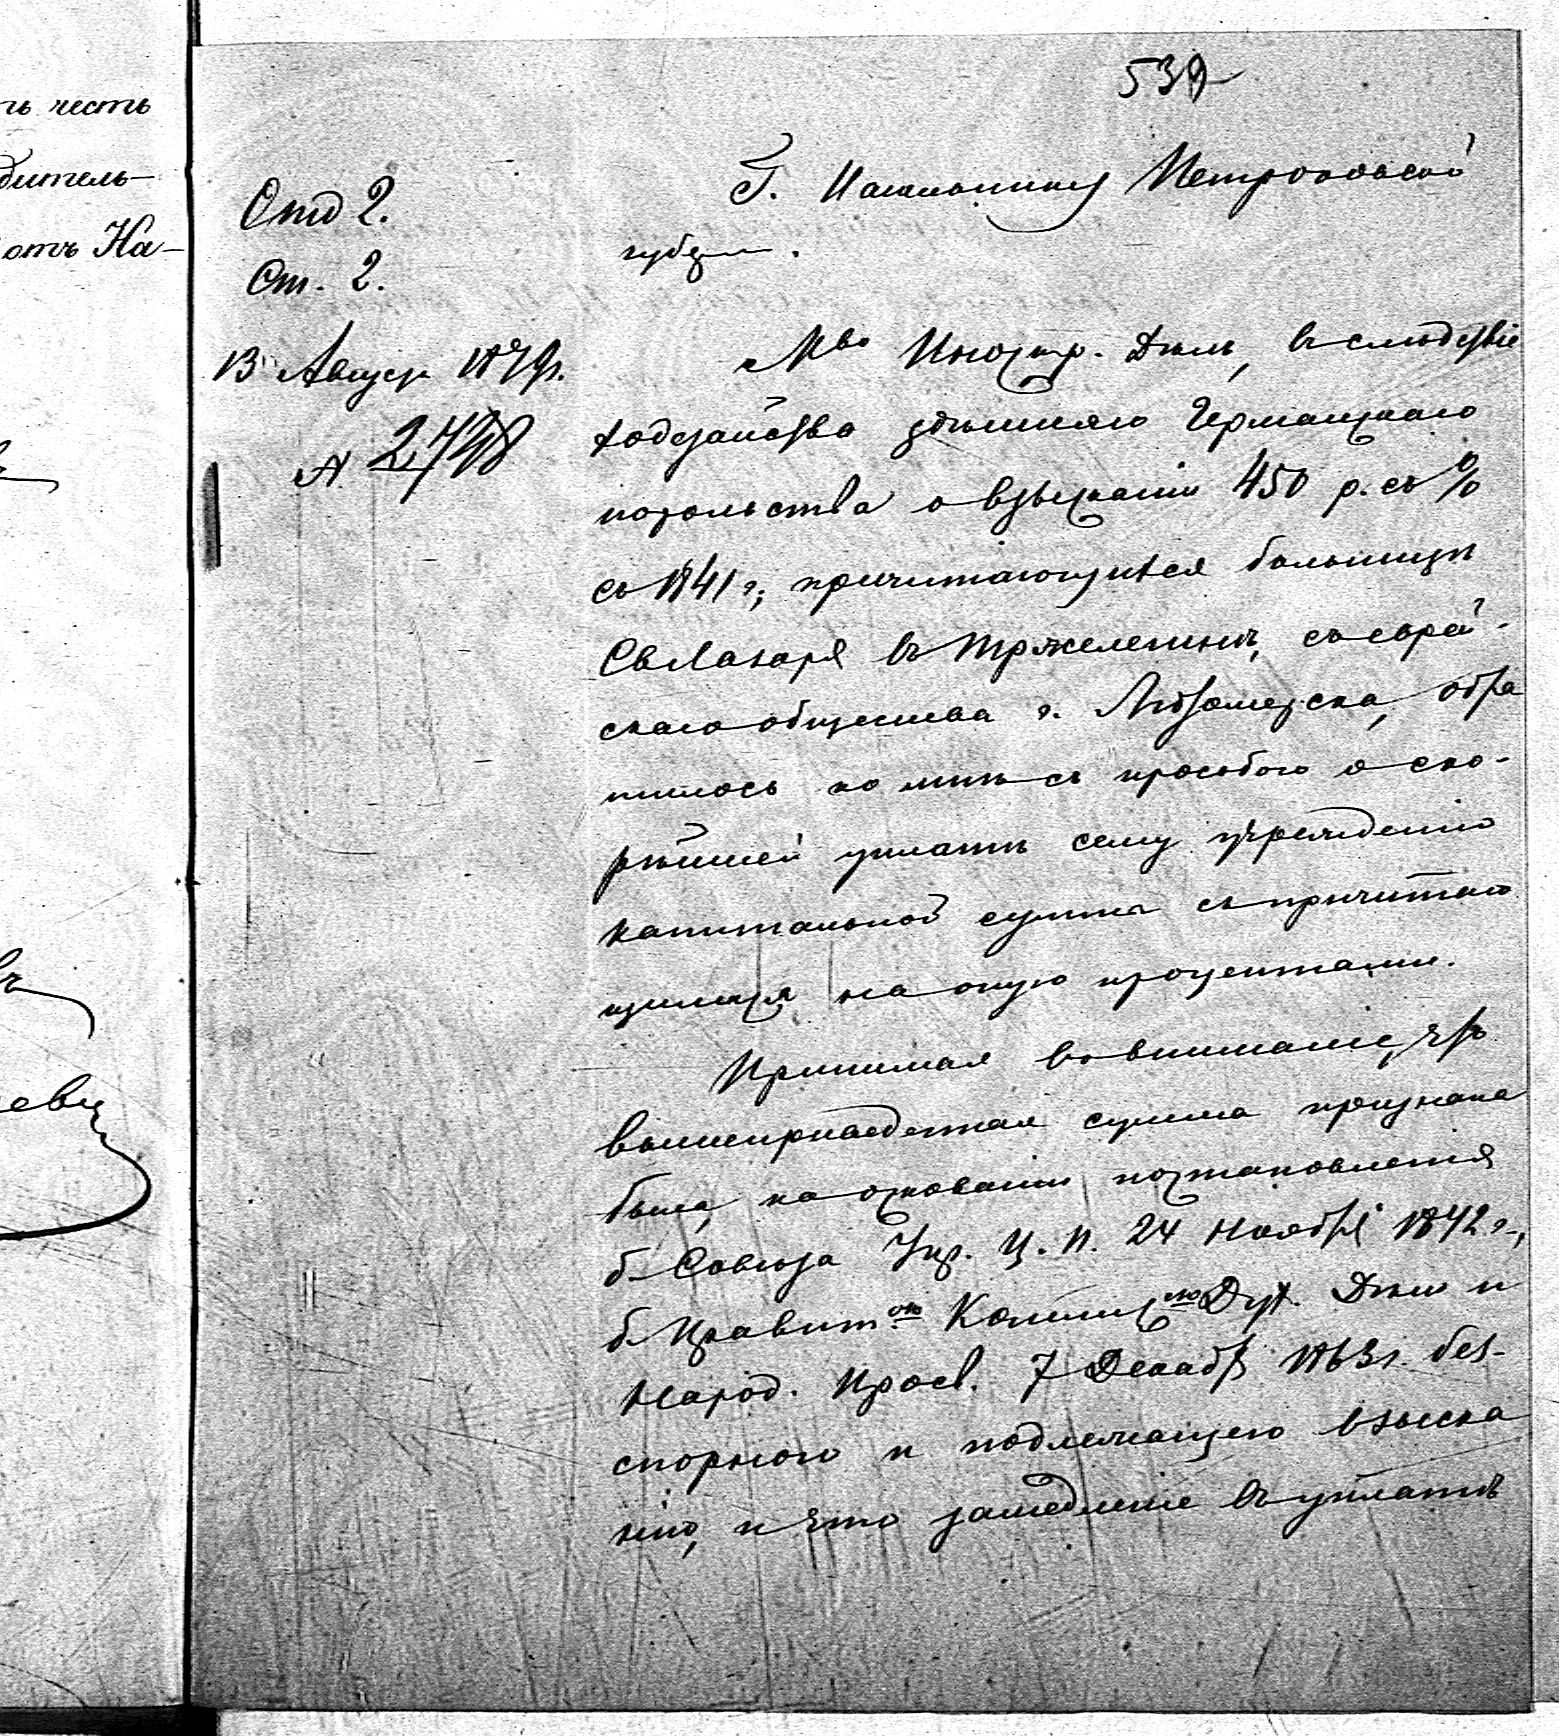 ть честь
дитель-
отъ На-
539
Отд 2.
Ст. 2.
13 Август 1879г.
№ 2748
Г. Начальнику Петроковской
губерн.
Мво Иностр. Дѣлъ, вслѣдствіе
ходатайства здѣшняго Германскаго
посольства о взысканіи 450 р. съ %
съ 1841 г., причитающихся больницѣ
Св Лазаря въ съ еврей-
скаго общества г. обра
тилось ко мнѣ съ просьбою о ско-
рѣйшей уплатѣ сему учрежденію
капитальной суммы съ причитаю
щимися на оную процентами.
Принимая во вниманіе, что
вышеприведенная сумма признана
была, на основаніи постановленія
б. Совета Упр. Ц. П. 24 Ноября 1842 г.,
б. Правит.ою Коммис.ію Дух. Дѣлъ и
Народ. Просв. 7 Декабр 1863 г. без-
спорного и подлежащею взыска
нію, и что замедленіе въ уплатѣ